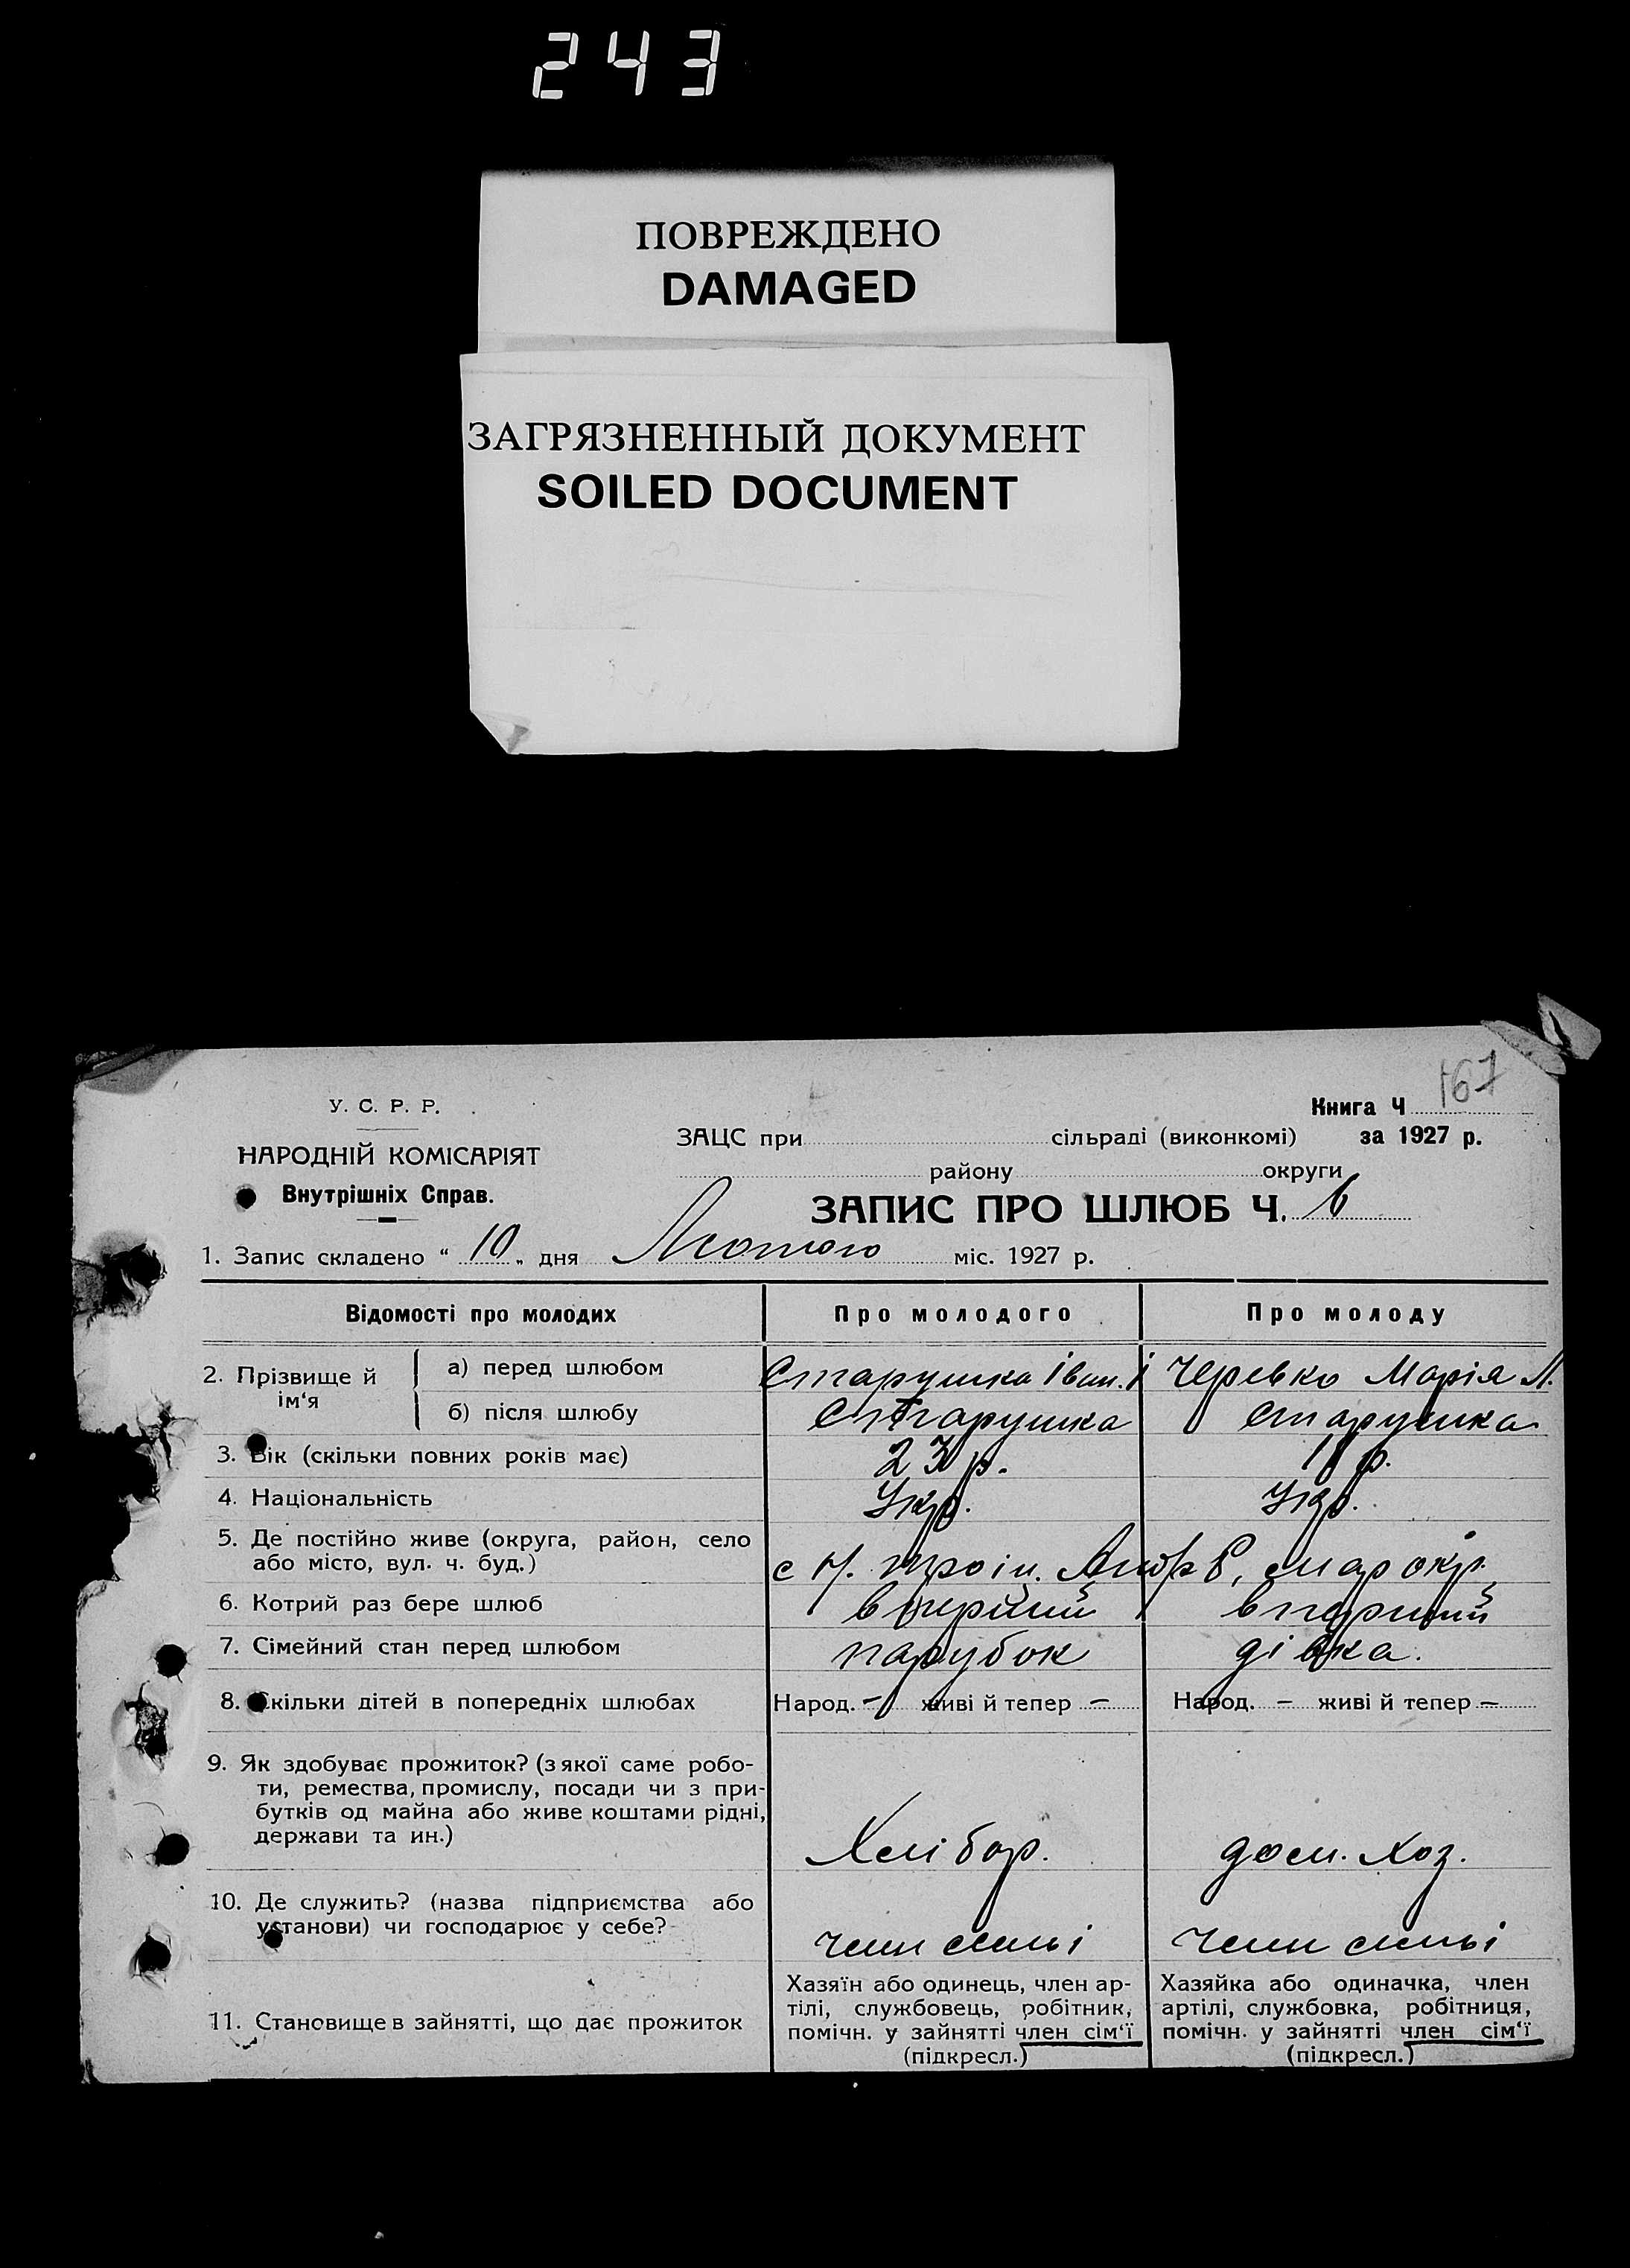 243
ПОВРЕЖДЕНО
DAMAGED
ЗАГРЯЗНЕННЫЙ ДОКУМЕНТ
SOILED DOCUMENT
167
У. С. Р. Р.
Книга Ч
НАРОДНІЙ КОМІСАРІЯТ
ЗАЦС при сільраді (виконкомі) за 1927 р.
району округи
Внутрішніх Справ.
ЗАПИС ПРО ШЛЮБ Ч. 6
1. Запис складено “ 10 „ дня Лютого міс. 1927 р.
Відомості про молодих Про молодого Про молоду
2. Прізвище й ім‘я а) перед шлюбом Старушка Іван. І Черевко Марія М.
б) після шлюбу Старушка Старушка
3. Вік (скільки повних років має) 23 р. р.
4. Національність Укр. Укр.
5. Де постійно живе (округа, район, село
або місто, вул. ч. буд.) с Н. Троіц. Мар окр.
6. Котрий раз бере шлюб вперший вперший
7. Сімейний стан перед шлюбом парубок дівка.
8. Скільки дітей в попередніх шлюбах Народ. – живі й тепер – Народ. – живі й тепер –
9. Як здобуває прожиток? (з якої саме робо-
ти, ремества, промислу, посади чи з при-
бутків од майна або живе коштами рідні,
держави та ин.) Хлібор. дом. хоз.
10. Де служить? (назва підприємства або
установи) чи господарює у себе? член симьі член симьі
11. Становище в зайнятті, що дає прожиток
Хазяїн або одинець, член ар-
тілі, службовець, робітник,
помічн. у зайнятті член сім‘ї
(підкресл.)
Хазяйка або одиначка, член
артілі, службовка, робітниця,
помічн. у зайнятті член сім‘ї
(підкресл.)